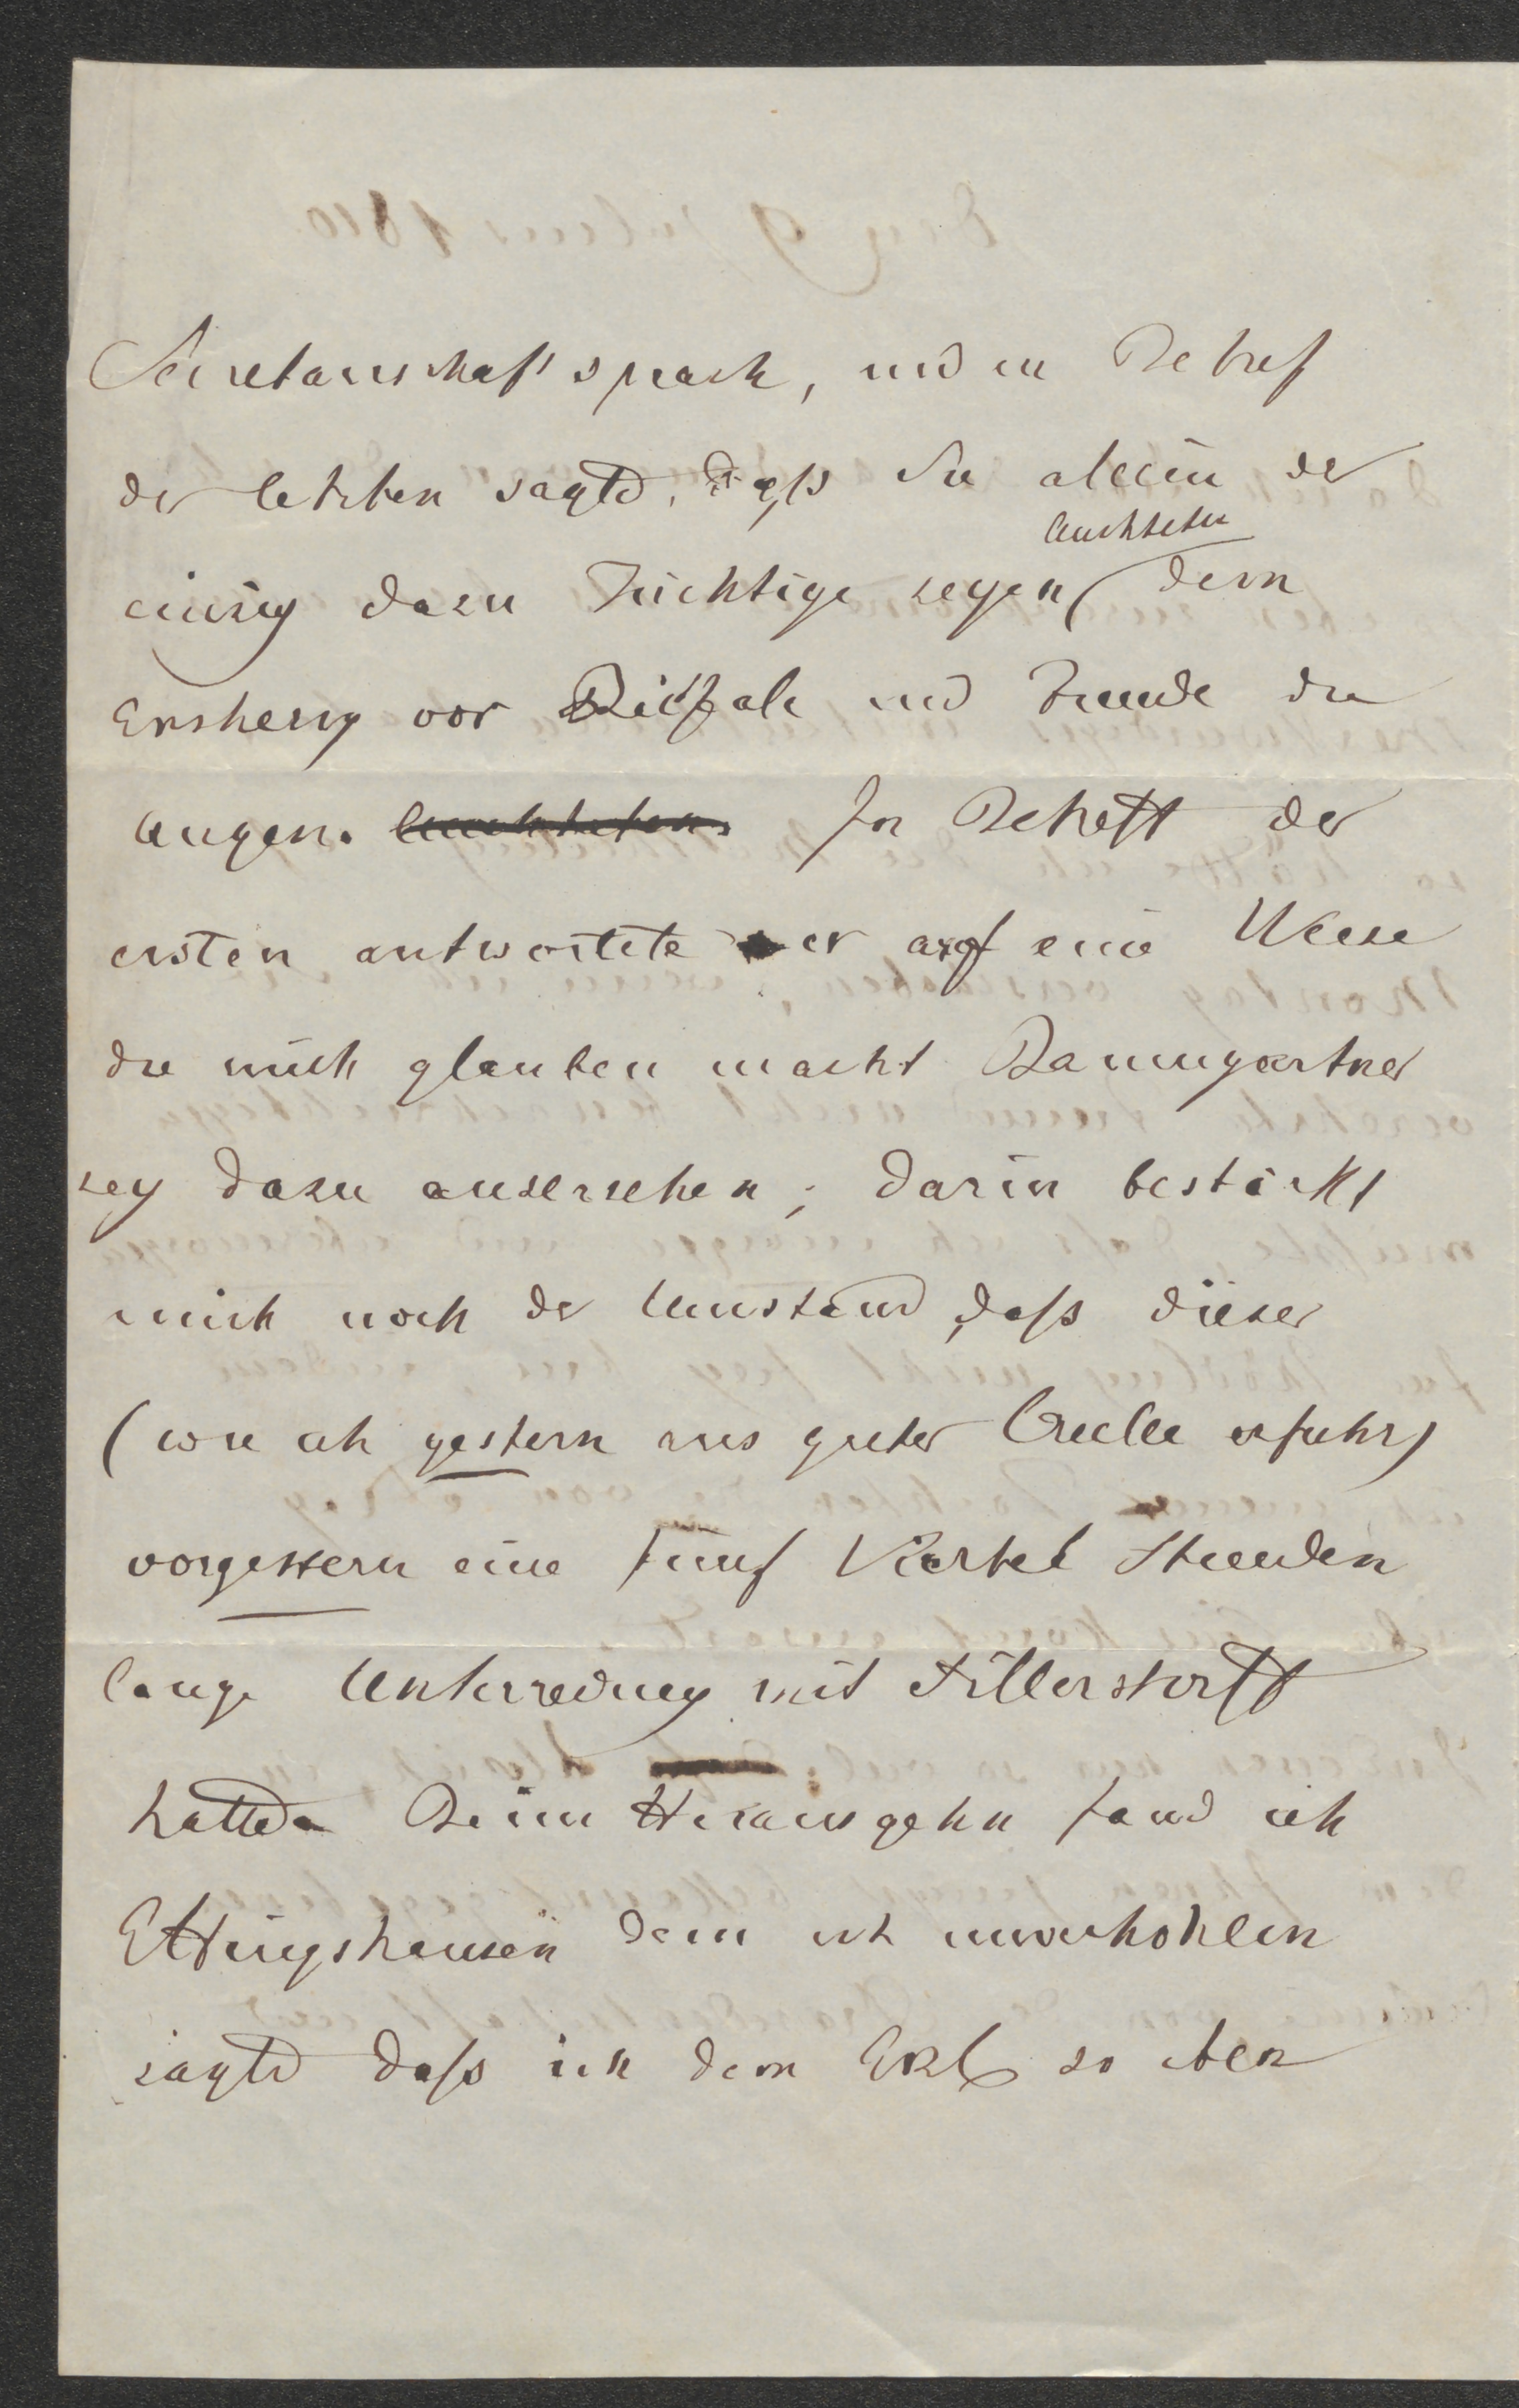 Secretairschaft sprach, und in Betref
der letzten sagte, daß Sie allein der
einzig dazu Tüchtige seyen leuchteten dem
Erzherzog vor Beifall und Freude die
Augen. leuchteten. In Betreff der
ersten antwortete er auf eine Weise
die mich glauben macht Baumgartner
sey dazu ausersehen; darin bestärkt
mich noch der Umstand, daß dieser
(wie ich gestern aus guter Quelle erfuhr)
vorgestern eine fünf Viertel Stunden
lange Unterredung mit Pillerstorff
hatte. Beim Herausgehn fand ich
Ettingshausen dem ich unverhohlen
sagte daß ich dem Erzh so eben